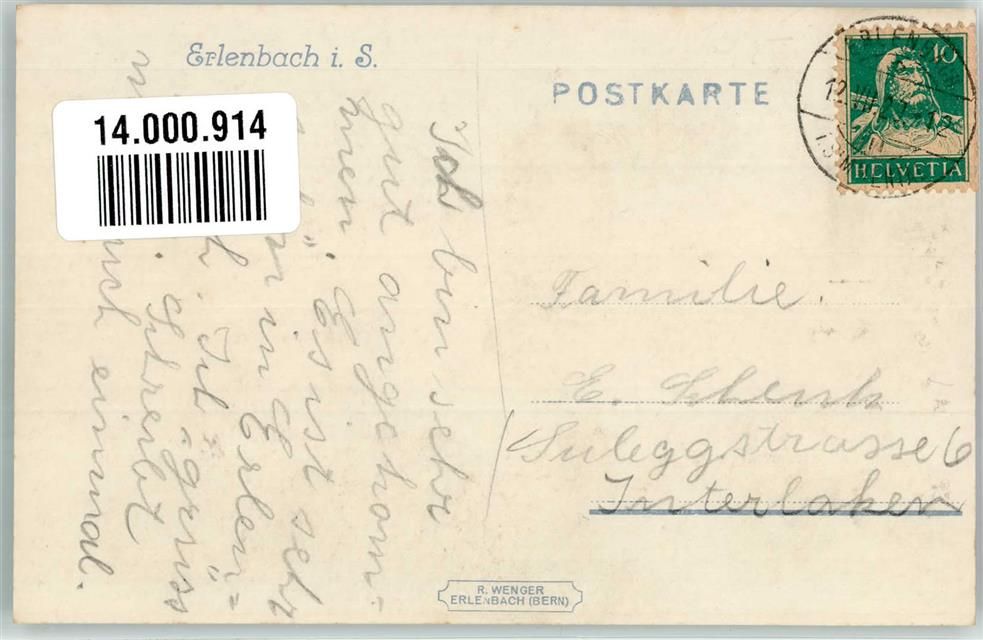 Erlenbach i. S.
POSTKARTE
10
HELVETIA
14.000.914
Ich bin sehr
gut angekom-
men. Es ist sehr
in Erlen=
Ihl. ägruss
Schreibt
auch einmal.
Familie.
E. Schenk
Suleggstrasse 6
Interlaken
R. WENGER
ERLENBACH (BERN)